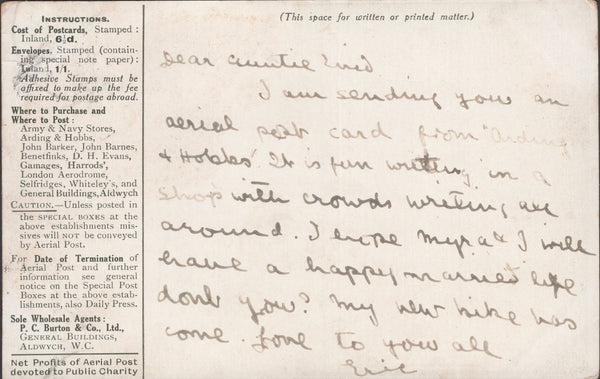 INSTRUCTIONS.
Cost of Postcards, Stamped :
Inland, 6½d.
Envelopes. Stamped (contain-
ing special note paper):
Inland, 1/1.
Adhesive Stamps must be
affixed to make up the fee
required for postage abroad.
Where to Purchase and
Where to Post :
Army & Navy Stores,
Arding & Hobbs,
John Barker, John Barnes,
Benetfinks, D. H. Evans,
Gamages, Harrods',
London Aerodrome,
Selfridges, Whiteley's, and
General Buildings, Aldwych
CAUTION.—Unless posted in
the SPECIAL BOXES at the
above establishments mis-
sives will NOT be conveyed
by Aerial Post.
For Date of Termination of
Aerial Post and further
information see general
notice on the Special Post
Boxes at the above estab-
lishments, also Daily Press.
Sole Wholesale Agents :
P. C. Burton & Co., Ltd.,
GENERAL BUILDINGS,
ALDWYCH, W.C.
Net Profits of Aerial Post
devoted to Public Charity
(This space for written or printed matter.)
Dear Auntie Enid
I am sending you an
aerial post card from "Arding
& Hobbs". It is fun writing in a
shop with crowds writing all
around. I hope Myra & I will
have a happy married life
dont you? My new bike has
come. Love to you all.
Eric